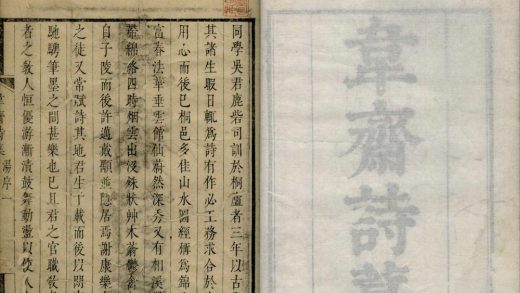 韋齋詩
同學吳君鹿柴司訓於桐廬者三年以古
其諸生暇日輒為詩有作必工務求合於
用心而後已桐邑多佳山水圖經稱為錦
富春法華垂雲館仙蔚然深秀又有相溪
縈絡四時烟雲出沒殊狀艸木蒼鬱
自子陵而後許邁戴顒並隱居焉謝康樂
之徒又常賦詩其地君生千載而後以閒
馳騁筆墨之間甚樂也已且君之官職教
者之教人恒優游漸漬鼓舞動盪以使人
湯序 一